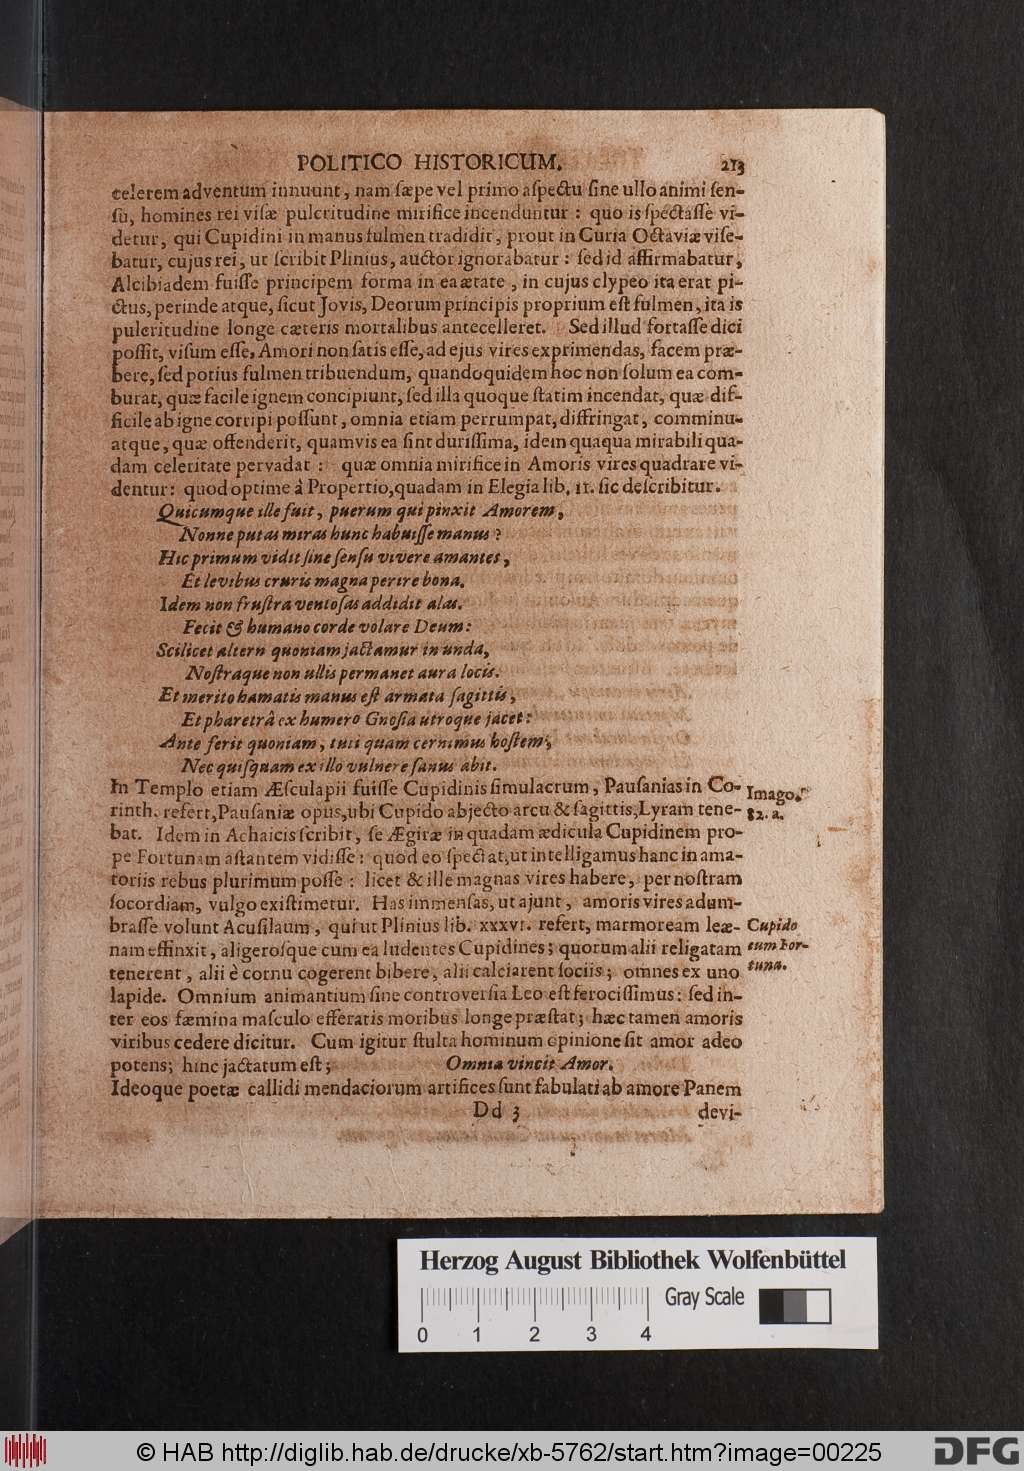 POLITICO HISTORICUM. 213
celerem adventum innuunt, nam ſæpe vel primo aſpectu ſine ullo animi ſen-
ſu, homines rei viſæ pulcritudine mirifice incenduntur : quo is ſpectaſſe vi-
detur, qui Cupidini in manus fulmen tradidit, prout in Curia Octaviæ viſe-
batur, cujus rei, ut ſcribit Plinius, auctor ignorabatur : ſed id affirmabatur,
Alcibiadem fuiſſe principem forma in ea ætate, in cujus clypeo ita erat pi-
ctus, perinde atque, ſicut Jovis, Deorum principis proprium eſt fulmen, ita is
pulcritudine longe cæteris mortalibus antecelleret. Sed illud fortaſſe dici
poſſit, viſum eſſe, Amori non ſatis eſſe, ad ejus vires exprimendas, facem præ-
bere, ſed potius fulmen tribuendum, quandoquidem hoc non ſolum ea com-
burat, quæ facile ignem concipiunt, ſed illa quoque ſtatim incendat, quæ dif-
ficile ab igne corripi poſſunt, omnia etiam perrumpat, diffringat, comminu-
atque, quæ offenderit, quamvis ea ſint duriſſima, idem quaqua mirabili qua-
dam celeritate pervadat : quæ omnia mirifice in Amoris vires quadrare vi-
dentur: quod optime à Propertio, quadam in Elegia lib. II. ſic deſcribitur.
Quicumque ille fuit, puerum qui pinxit Amorem,
Nonne putas miras hunc habuiſſe manus?
Hic primum vidit ſine ſenſu vivere amantes,
Et levibus cruris magna perire bona.
Idem non fruſtra ventoſas addidit alas.
Fecit & humano corde volare Deum:
Scilicet altern quoniam jactamur in unda,
Noſtraque non ullis permanet aura locis.
Et merito hamatis manus eſt armata ſagittis,
Et pharetrâ ex humero Gnoſia utroque jacet:
Ante ferit quoniam, tuti quam cernimus hoſtem,
Nec quiſquam ex illo vulnere ſanus abit.
In Templo etiam Æſculapii fuiſſe Cupidinis ſimulacrum, Pauſanias in Co-
rinth. refert, Pauſaniæ opus, ubi Cupido abjecto arcu & ſagittis, Lyram tene-
bat. Idem in Achaicis ſcribit, ſe Ægiræ in quadam ædicula Cupidinem pro-
pe Fortunam aſtantem vidiſſe : quod eo ſpectat, ut intelligamus hanc in ama-
toriis rebus plurimum poſſe : licet & ille magnas vires habere, per noſtram
ſocordiam, vulgo exiſtimetur. Has immenſas, ut ajunt, amoris vires adum-
braſſe volunt Acuſilaum, qui ut Plinius lib. XXXVI. refert, marmoream leæ-
nam effinxit, aligeroſque cum ea ludentes Cupidines; quorum alii religatam
tenerent, alii è cornu cogerent bibere, alii calciarent ſociis; omnes ex uno
lapide. Omnium animantium ſine controverſia Leo eſt ferociſſimus: ſed in-
ter eos fæmina maſculo efferatis moribus longe præſtat; hæc tamen amoris
viribus cedere dicitur. Cum igitur ſtulta hominum opinione ſit amor adeo
potens; hinc jactatum eſt; Omnia vincit Amor.
Ideoque poetæ callidi mendaciorum artifices ſunt fabulati ab amore Panem
Dd 3 devi-
Imago.
82. a.
Cupido
cum For-
tuna.
Herzog August Bibliothek Wolfenbüttel
Gray Scale
0 1 2 3 4
© HAB http://diglib.hab.de/drucke/xb-5762/start.htm?image=00225
DFG